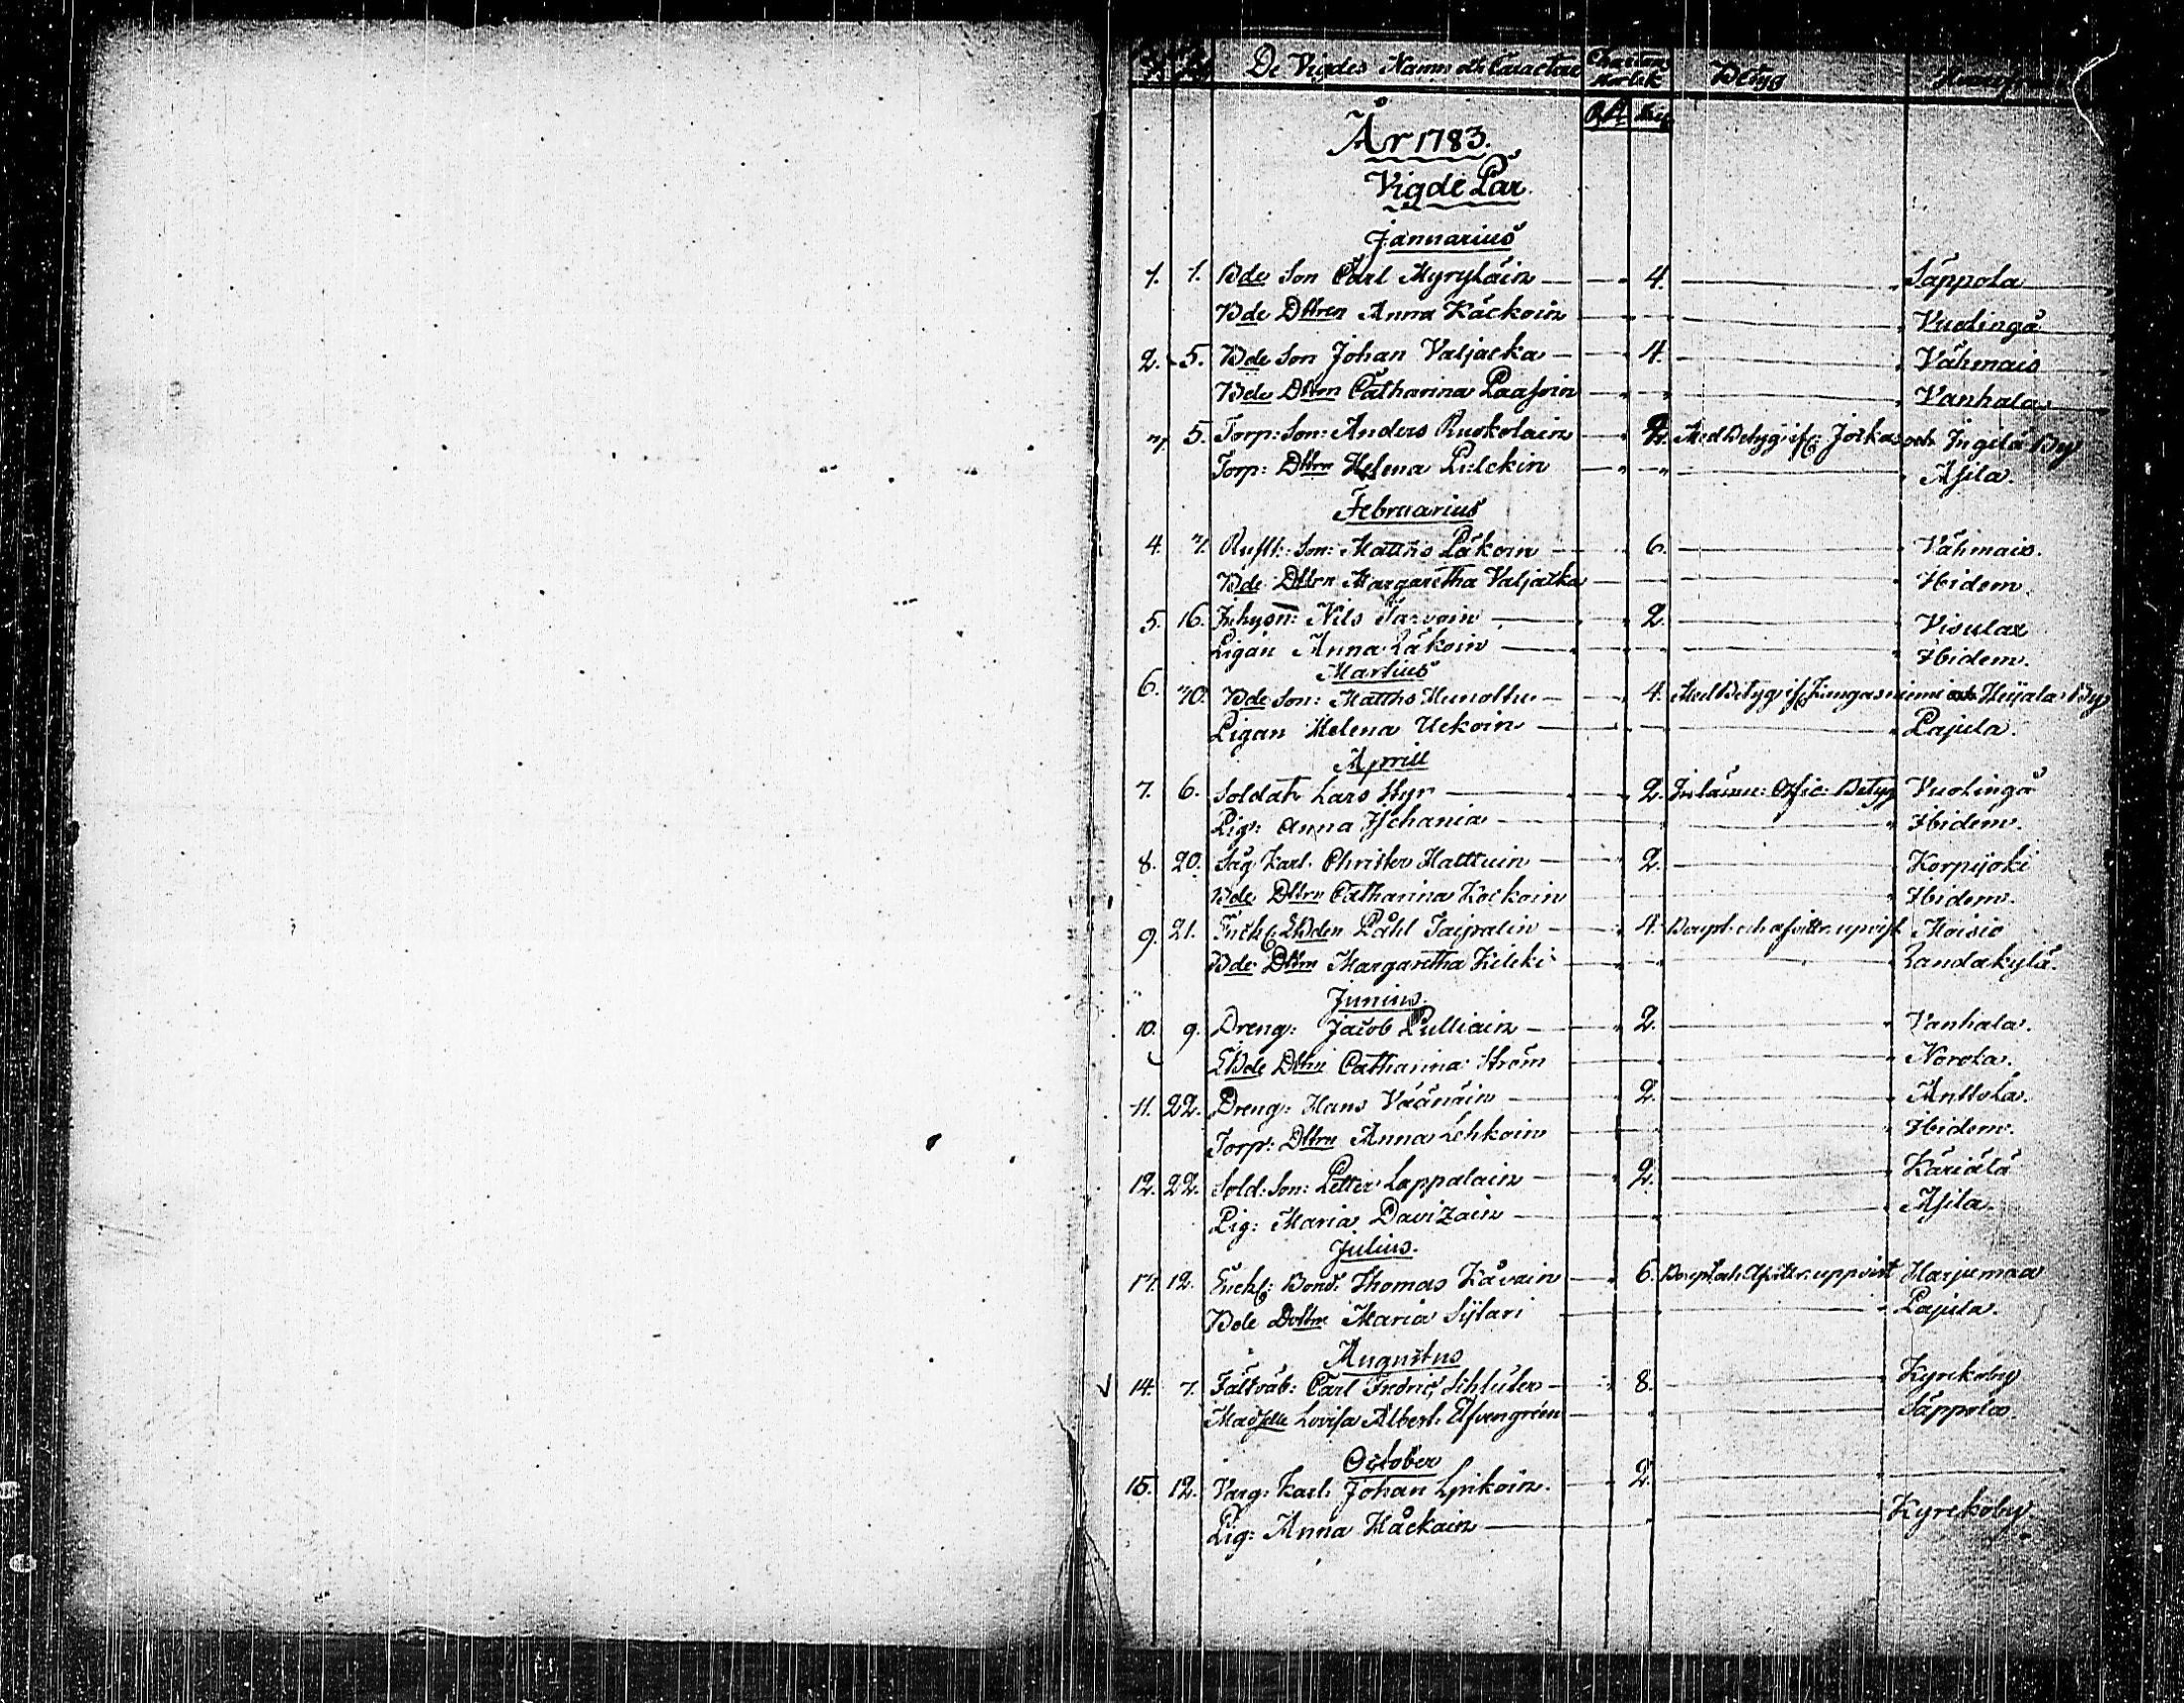 De Vigdes Namn och Caracterer Charta Betyg
År 1783.
Vigde Par.
Januarius
1. 1. Bde Son Carl Myryläin 4. Säppola
Bde Dttren Anna Käckoin Vuolingå
2. 5. Bde Son Johan Valjacka 4. Vähmais
Bde Dttren Catharina Paasoin Vanhala
5. Torp: Son: Anders Ruokolain 2. Med Betyg if: Jockas och Ingelä By
Torp: Dttrn Helena Pulckin Asila.
Februarius
4. 7. Rustk: Son: Matths Päkoin 6. Vähmais.
Bde Dttrn Margaretha Valjacka Ibidem.
5. 16. Inhysn: Nils Tarvoin 2. Visulax
Pigan Anna Päkoin Ibidem.
Martius
6. 30. Bde Son: Matths Hunoltu 4. Med Betyg if Kangasniemi och Heijala By
Pigan Helena Uckoin Pajula.
Aprill
7. 6. Soldat Lars Styr 2. Inlämn: Offic: Betyg Vuolingå
Pig: Anna Ischania Ibidem.
8. 20. Säg Karl Christer Hattuin 2. Korpijoki
Bde Dttrn Catharina Kockoin Ibidem.
9. 21. Enckl: Bden Påhl Taipalin 4. Boupt. och afvittr. upvist Moisio
Bde Dttrn Margaretha Kilcki Randakylä.
Junius.
10. 9. Dreng: Jacob Pulliain 2. Vanhala.
Bde Dttrn Catharina Ström Norola.
11. 22. Dreng: Hans Väänäin 2. Anttola.
Torp: Dttrn Anna Lehkoin Ibidem.
12. 22. Sold: Son: Petter Lappalain 2. Kariälä
Pig: Maria Davizain Asila.
Julius.
13. 12. Enckl: Bond: Thomas Kåvain 6. Boupt. och Afvittr. uppvist Harjumaa
Bde Dottrn Maria Sijlari Pajula.
Augustus
14. 7. Fältväb: Carl Fredric Schlüter 8. Kyrckoby
Madselle Lovisa Albert. Elfvengréen Säppola.
October
15. 12. Varg: Karl: Johan Lyikoin. 2.
Pig: Anna Håckain Kyrckoby